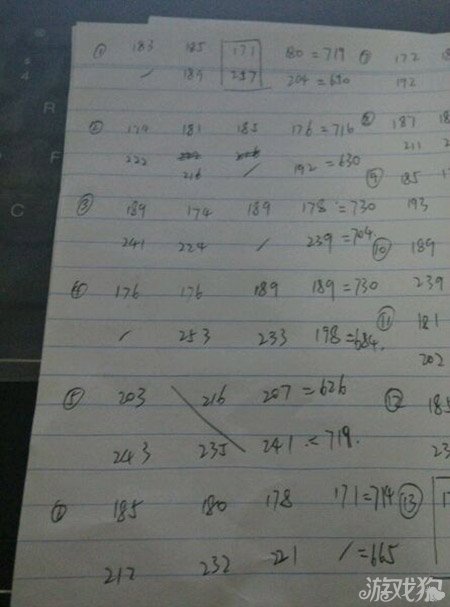 ① 183 185 171 180=719 ⑦ 172
/ 189 297 204=690 192
② 174 181 185 176=716 ⑧ 187
222 216 / 192=630 211
⑨ 185
③ 189 174 189 178=730 193
241 224 / 239=704
⑩ 189
④ 176 176 189 189=730 239
/ 253 233 198=684. ⑪ 181
202
⑤ 203 216 207=626 ⑫ 185
243 235 241=719.
⑥ 185 180 178 171=714 ⑬
212 232 221 /=665
游戏狗